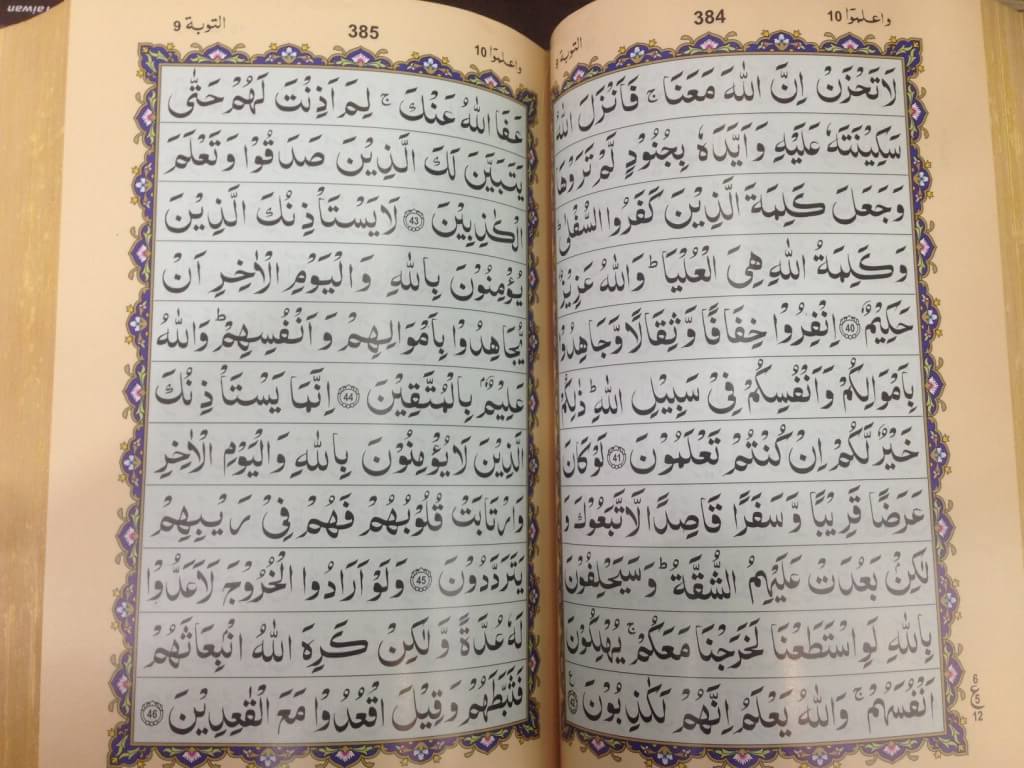 واعلموٓا 10
384
التوبة 9
لَا تَحْزَنْ اِنَّ اللّٰهَ مَعَنَا ۚ فَاَنْزَلَ اللّٰهُ
سَكِيْنَتَهٗ عَلَيْهِ وَ اَيَّدَهٗ بِجُنُوْدٍ لَّمْ تَرَوْهَا
وَ جَعَلَ كَلِمَةَ الَّذِيْنَ كَفَرُوا السُّفْلٰى ؕ
وَ كَلِمَةُ اللّٰهِ هِيَ الْعُلْيَا ؕ وَ اللّٰهُ عَزِيْزٌ
حَكِيْمٌ 40 اِنْفِرُوْا خِفَافًا وَّ ثِقَالًا وَّ جَاهِدُوْا
بِاَمْوَالِكُمْ وَ اَنْفُسِكُمْ فِيْ سَبِيْلِ اللّٰهِ ؕ ذٰلِكُمْ
خَيْرٌ لَّكُمْ اِنْ كُنْتُمْ تَعْلَمُوْنَ 41 لَوْ كَانَ
عَرَضًا قَرِيْبًا وَّ سَفَرًا قَاصِدًا لَّاتَّبَعُوْكَ وَ
لٰكِنْۢ بَعُدَتْ عَلَيْهِمُ الشُّقَّةُ ؕ وَ سَيَحْلِفُوْنَ
بِاللّٰهِ لَوِ اسْتَطَعْنَا لَخَرَجْنَا مَعَكُمْ ۚ يُهْلِكُوْنَ
اَنْفُسَهُمْ ۚ وَ اللّٰهُ يَعْلَمُ اِنَّهُمْ لَكٰذِبُوْنَ 42
6
ع
5
12
واعلموٓا 10
385
التوبة 9
عَفَا اللّٰهُ عَنْكَ ۚ لِمَ اَذِنْتَ لَهُمْ حَتّٰى
يَتَبَيَّنَ لَكَ الَّذِيْنَ صَدَقُوْا وَ تَعْلَمَ
الْكٰذِبِيْنَ 43 لَا يَسْتَاْذِنُكَ الَّذِيْنَ
يُؤْمِنُوْنَ بِاللّٰهِ وَ الْيَوْمِ الْاٰخِرِ اَنْ
يُّجَاهِدُوْا بِاَمْوَالِهِمْ وَ اَنْفُسِهِمْ ؕ وَ اللّٰهُ
عَلِيْمٌۢ بِالْمُتَّقِيْنَ 44 اِنَّمَا يَسْتَاْذِنُكَ
الَّذِيْنَ لَا يُؤْمِنُوْنَ بِاللّٰهِ وَ الْيَوْمِ الْاٰخِرِ
وَ ارْتَابَتْ قُلُوْبُهُمْ فَهُمْ فِيْ رَيْبِهِمْ
يَتَرَدَّدُوْنَ 45 وَ لَوْ اَرَادُوا الْخُرُوْجَ لَاَعَدُّوْا
لَهٗ عُدَّةً وَّ لٰكِنْ كَرِهَ اللّٰهُ انْۢبِعَاثَهُمْ
فَثَبَّطَهُمْ وَ قِيْلَ اقْعُدُوْا مَعَ الْقٰعِدِيْنَ 46